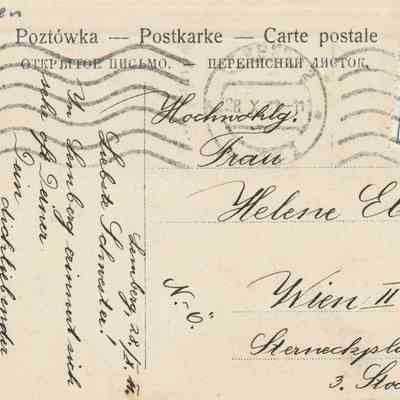 en
Poztówka — Postkarke — Carte postale
ОТКРЫТОЕ ПИСЬМО. — ПЕРЕПИСНИЙ ЛИСТОК.
28. X.
Hochwohlg.
Frau
Helene El
Wien II
Sterneckpla
3. Stoc
N. Ö.
Lemberg, 28/X.
Liebste Schwester!
In Lemberg erinnert sich
sehr oft Deiner
Dein dichliebender